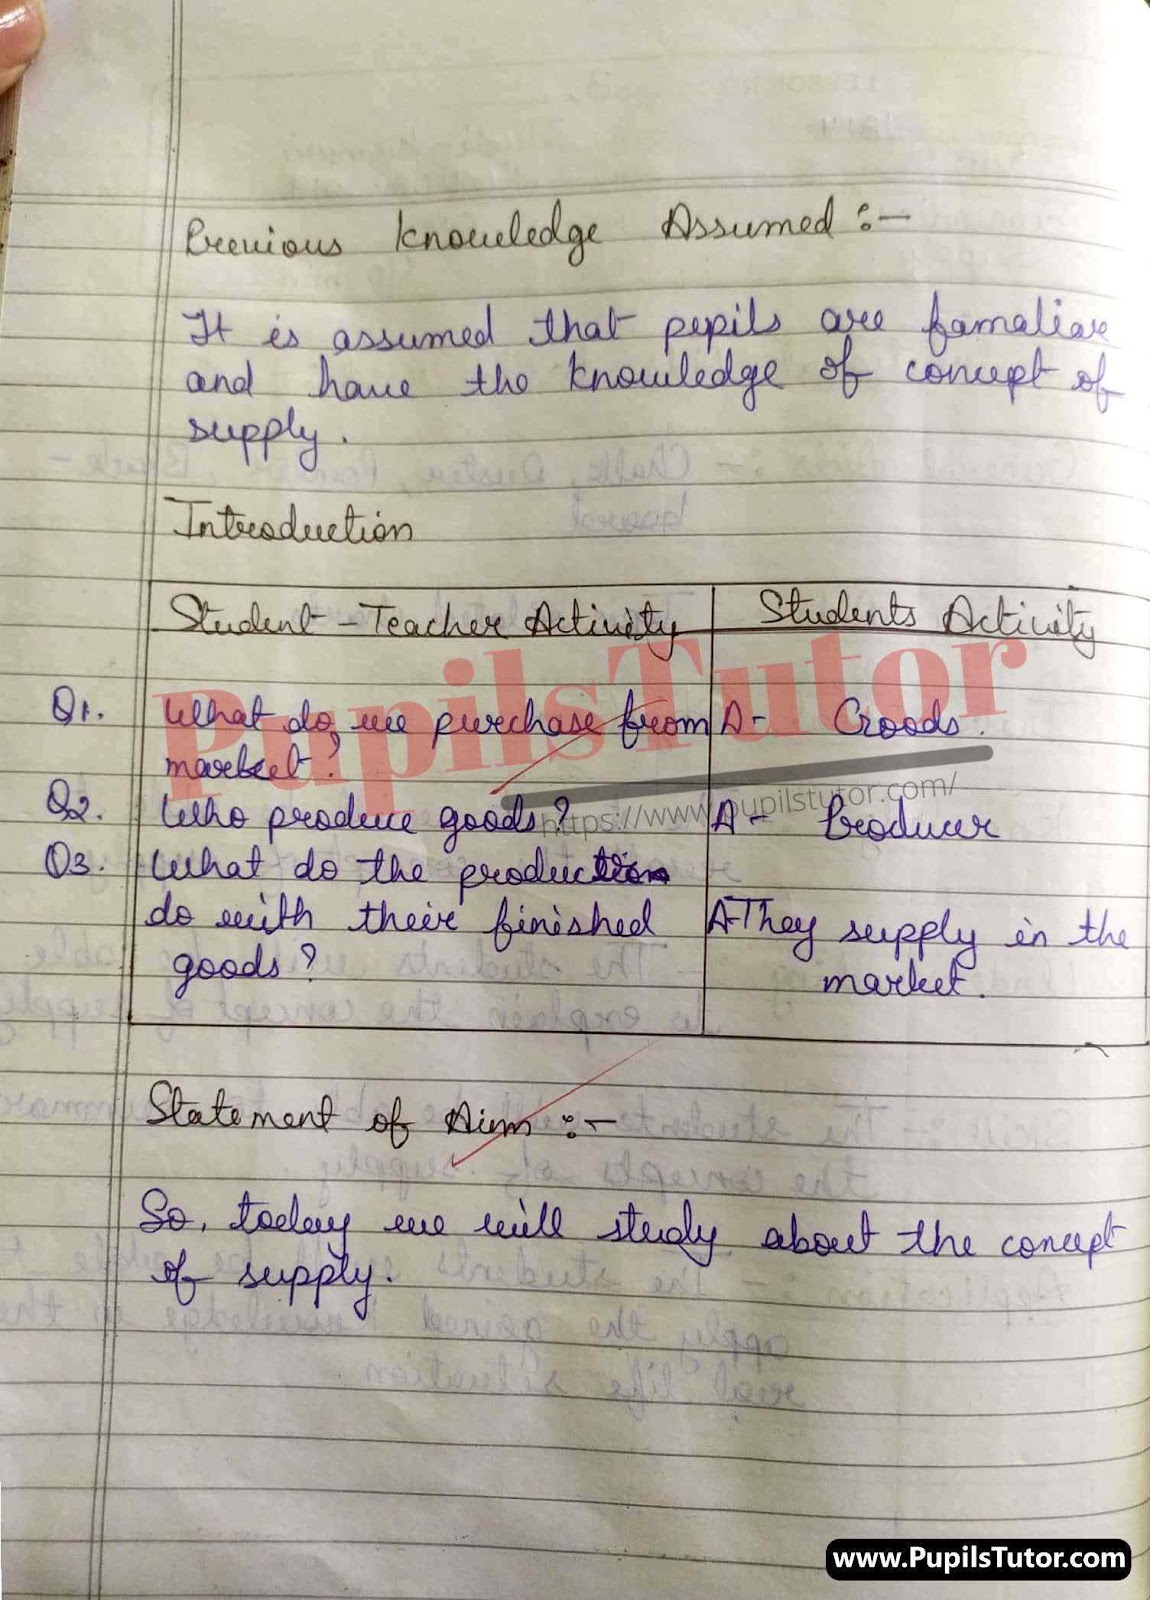 Previous Knowledge Assumed :-
It is assumed that pepils are famaliar
and have the knowledge of concept of
supply.
Introduction
Student - Teacher Activity Students Activity
Q1. What do we purchase from A- Goods.
market?
Q2. Who produce goods? A- Producer
Q3. What do the production
do with their finished A- They supply in the
goods? market.
Statement of Aim :-
So, today we will study about the concept
of supply.
PupilsTutor
https://www.pupilstutor.com/
www.PupilsTutor.com